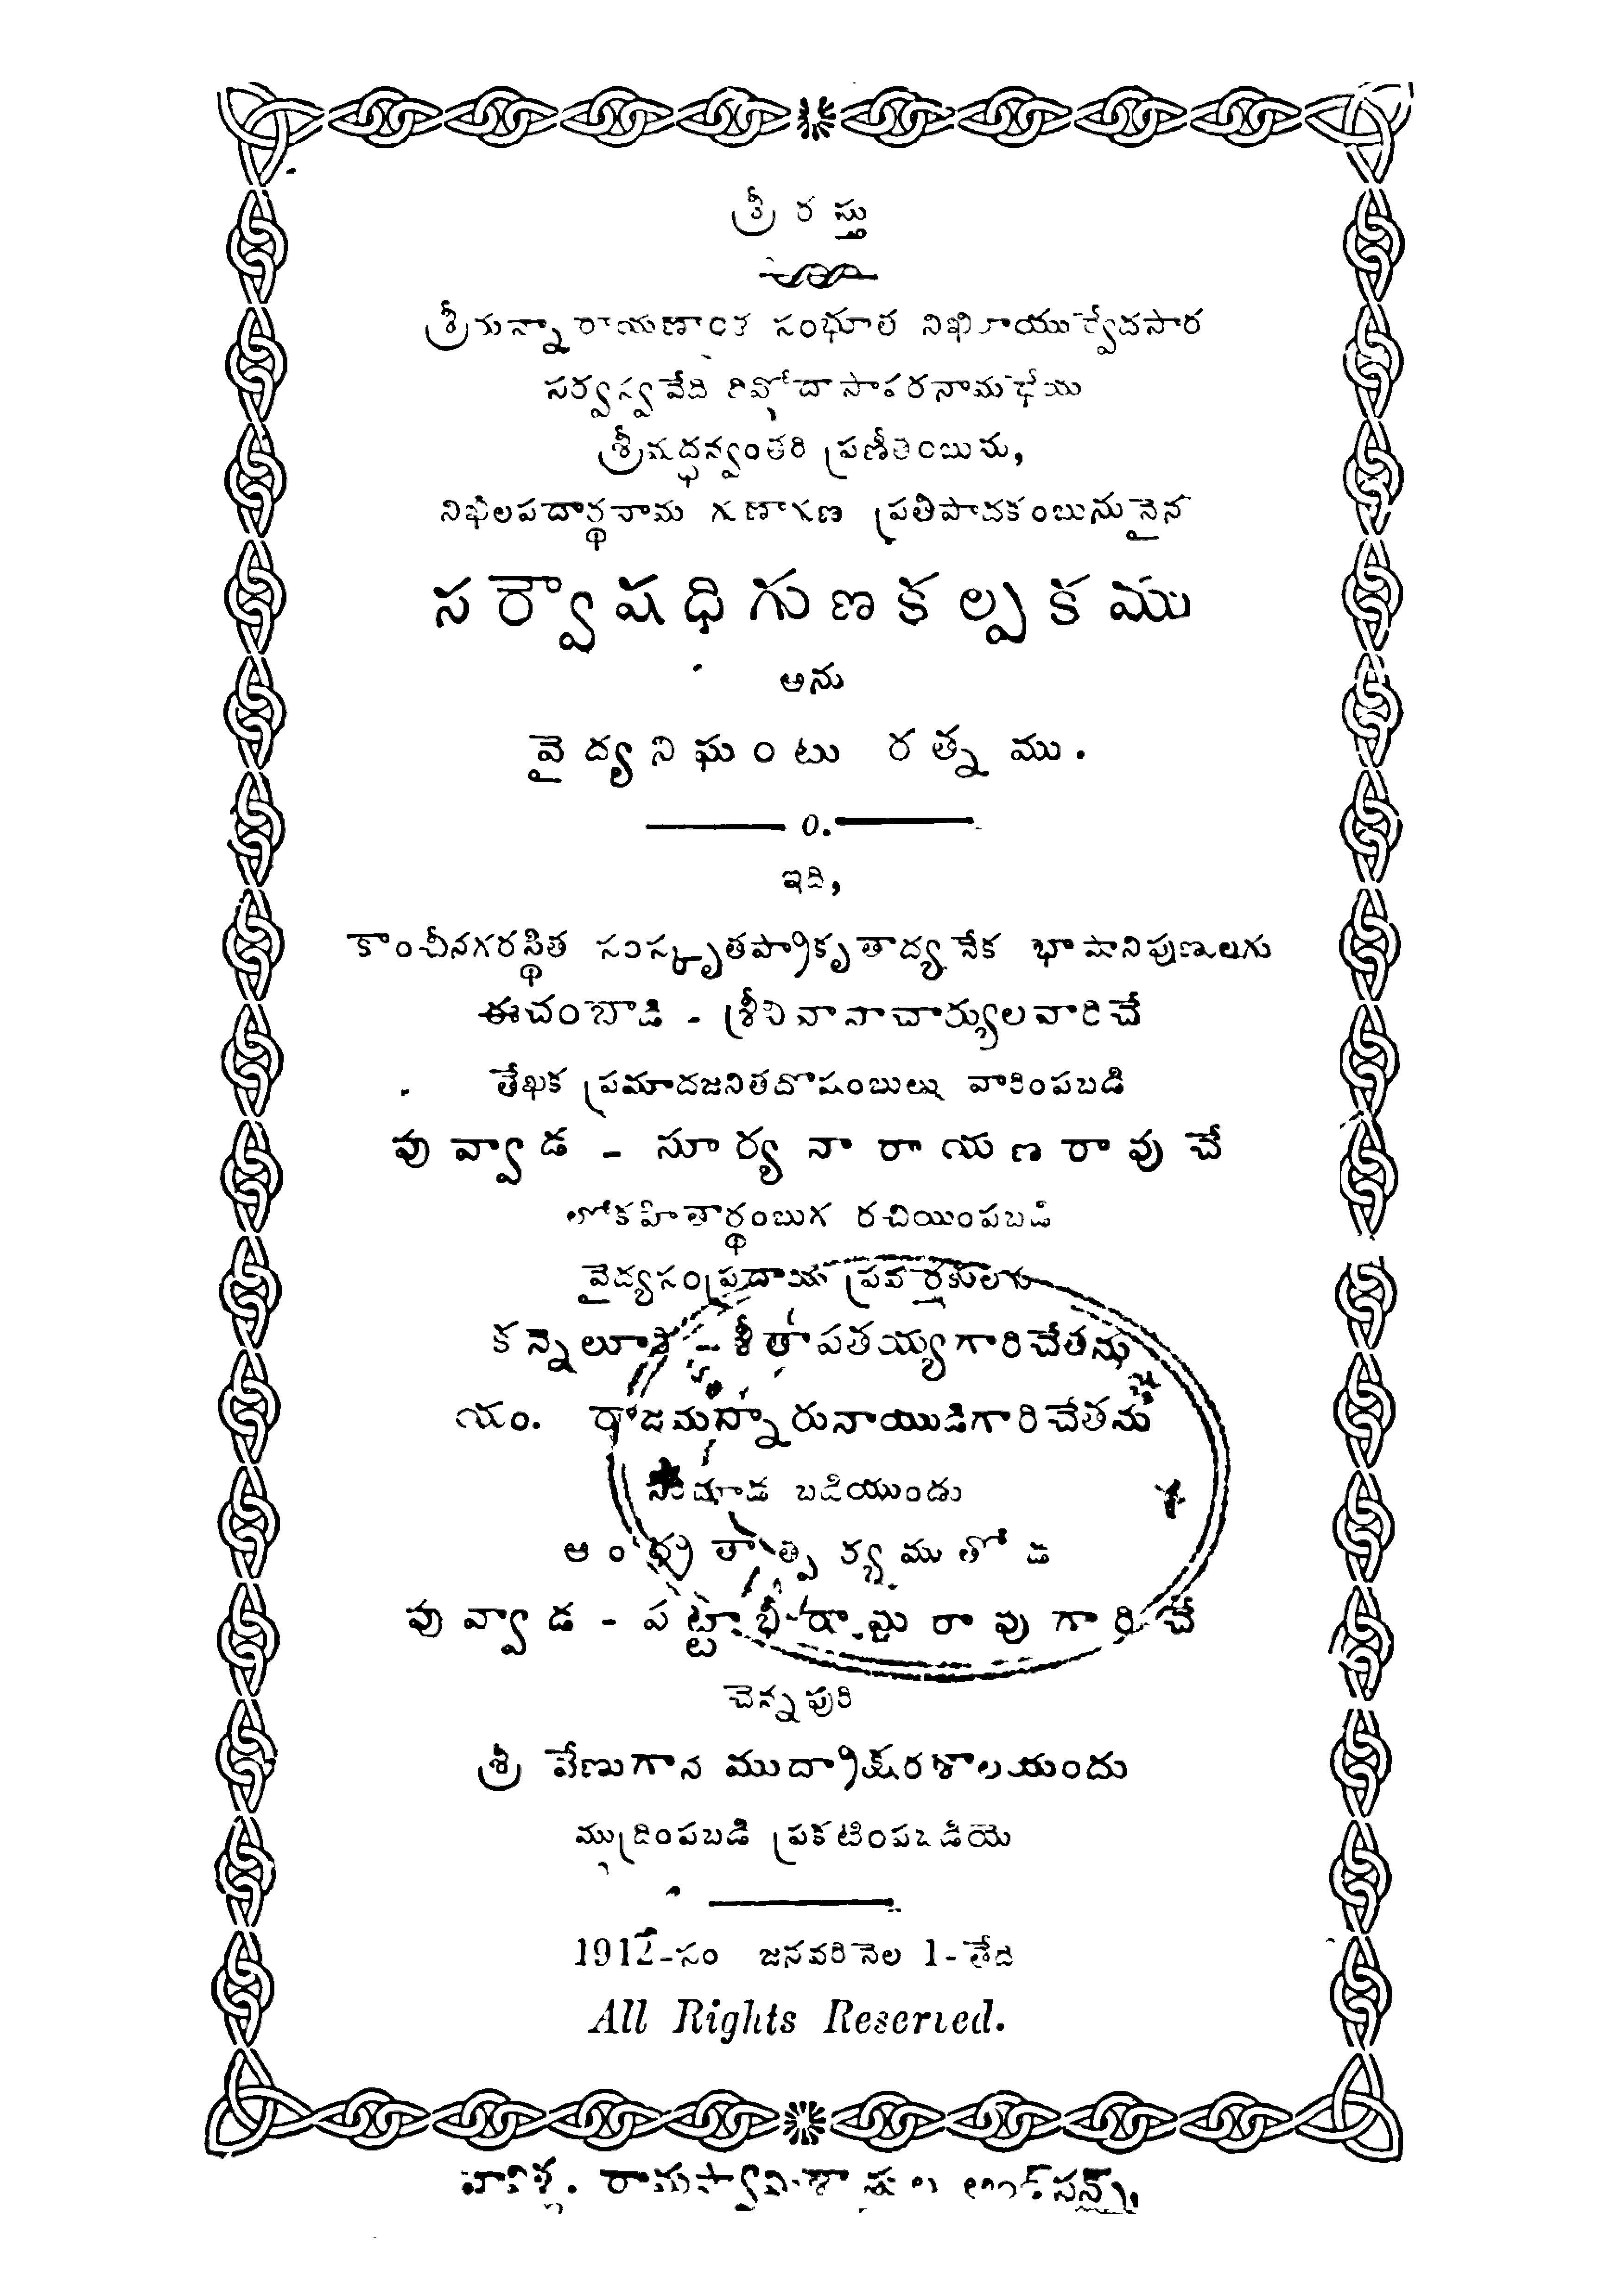 శ్రీరస్తు
శ్రీమన్నారాయణాంశ సంభూత నిఖిలాయుర్వేదసార
సర్వస్వవేది దివోదాసాపరనామధేయ
శ్రీమద్ధన్వంతరి ప్రణీతంబును,
నిఖిలపదార్థనామ గుణాగుణ ప్రతిపాదకంబునునైన
సర్వౌషధిగుణకల్పకము
అను
వైద్యనిఘంటు రత్నము.
ఇది,
కాంచీనగరస్థిత సంస్కృతప్రాకృతాద్యనేక భాషానిపుణులగు
ఈచంబాడి - శ్రీనివాసాచార్యులవారిచే
లేఖక ప్రమాదజనితదోషంబులు వారింపబడి
పువ్వాడ - సూర్యనారాయణరావుచే
లోకహితార్థంబుగ రచియింపబడి
వైద్యసంప్రదాయ ప్రవర్తకులగు
కన్నెలూరి - శీతాపతయ్యగారిచేతను
యం. రాజమన్నారునాయుడిగారిచేతను
బడియుండు
ఆంధ్ర తాత్పర్యముతోడ
పువ్వాడ - పట్టాభిరామరావుగారిచే
చెన్నపురి
శ్రీ వేణుగాన ముద్రాక్షరశాలయందు
ముద్రింపబడి ప్రకటింపబడియె
1912-సం జనవరినెల 1-తేది
All Rights Reserved.
వావిళ్ల. రామస్వామిశాస్త్రులు అండ్ సన్స్,